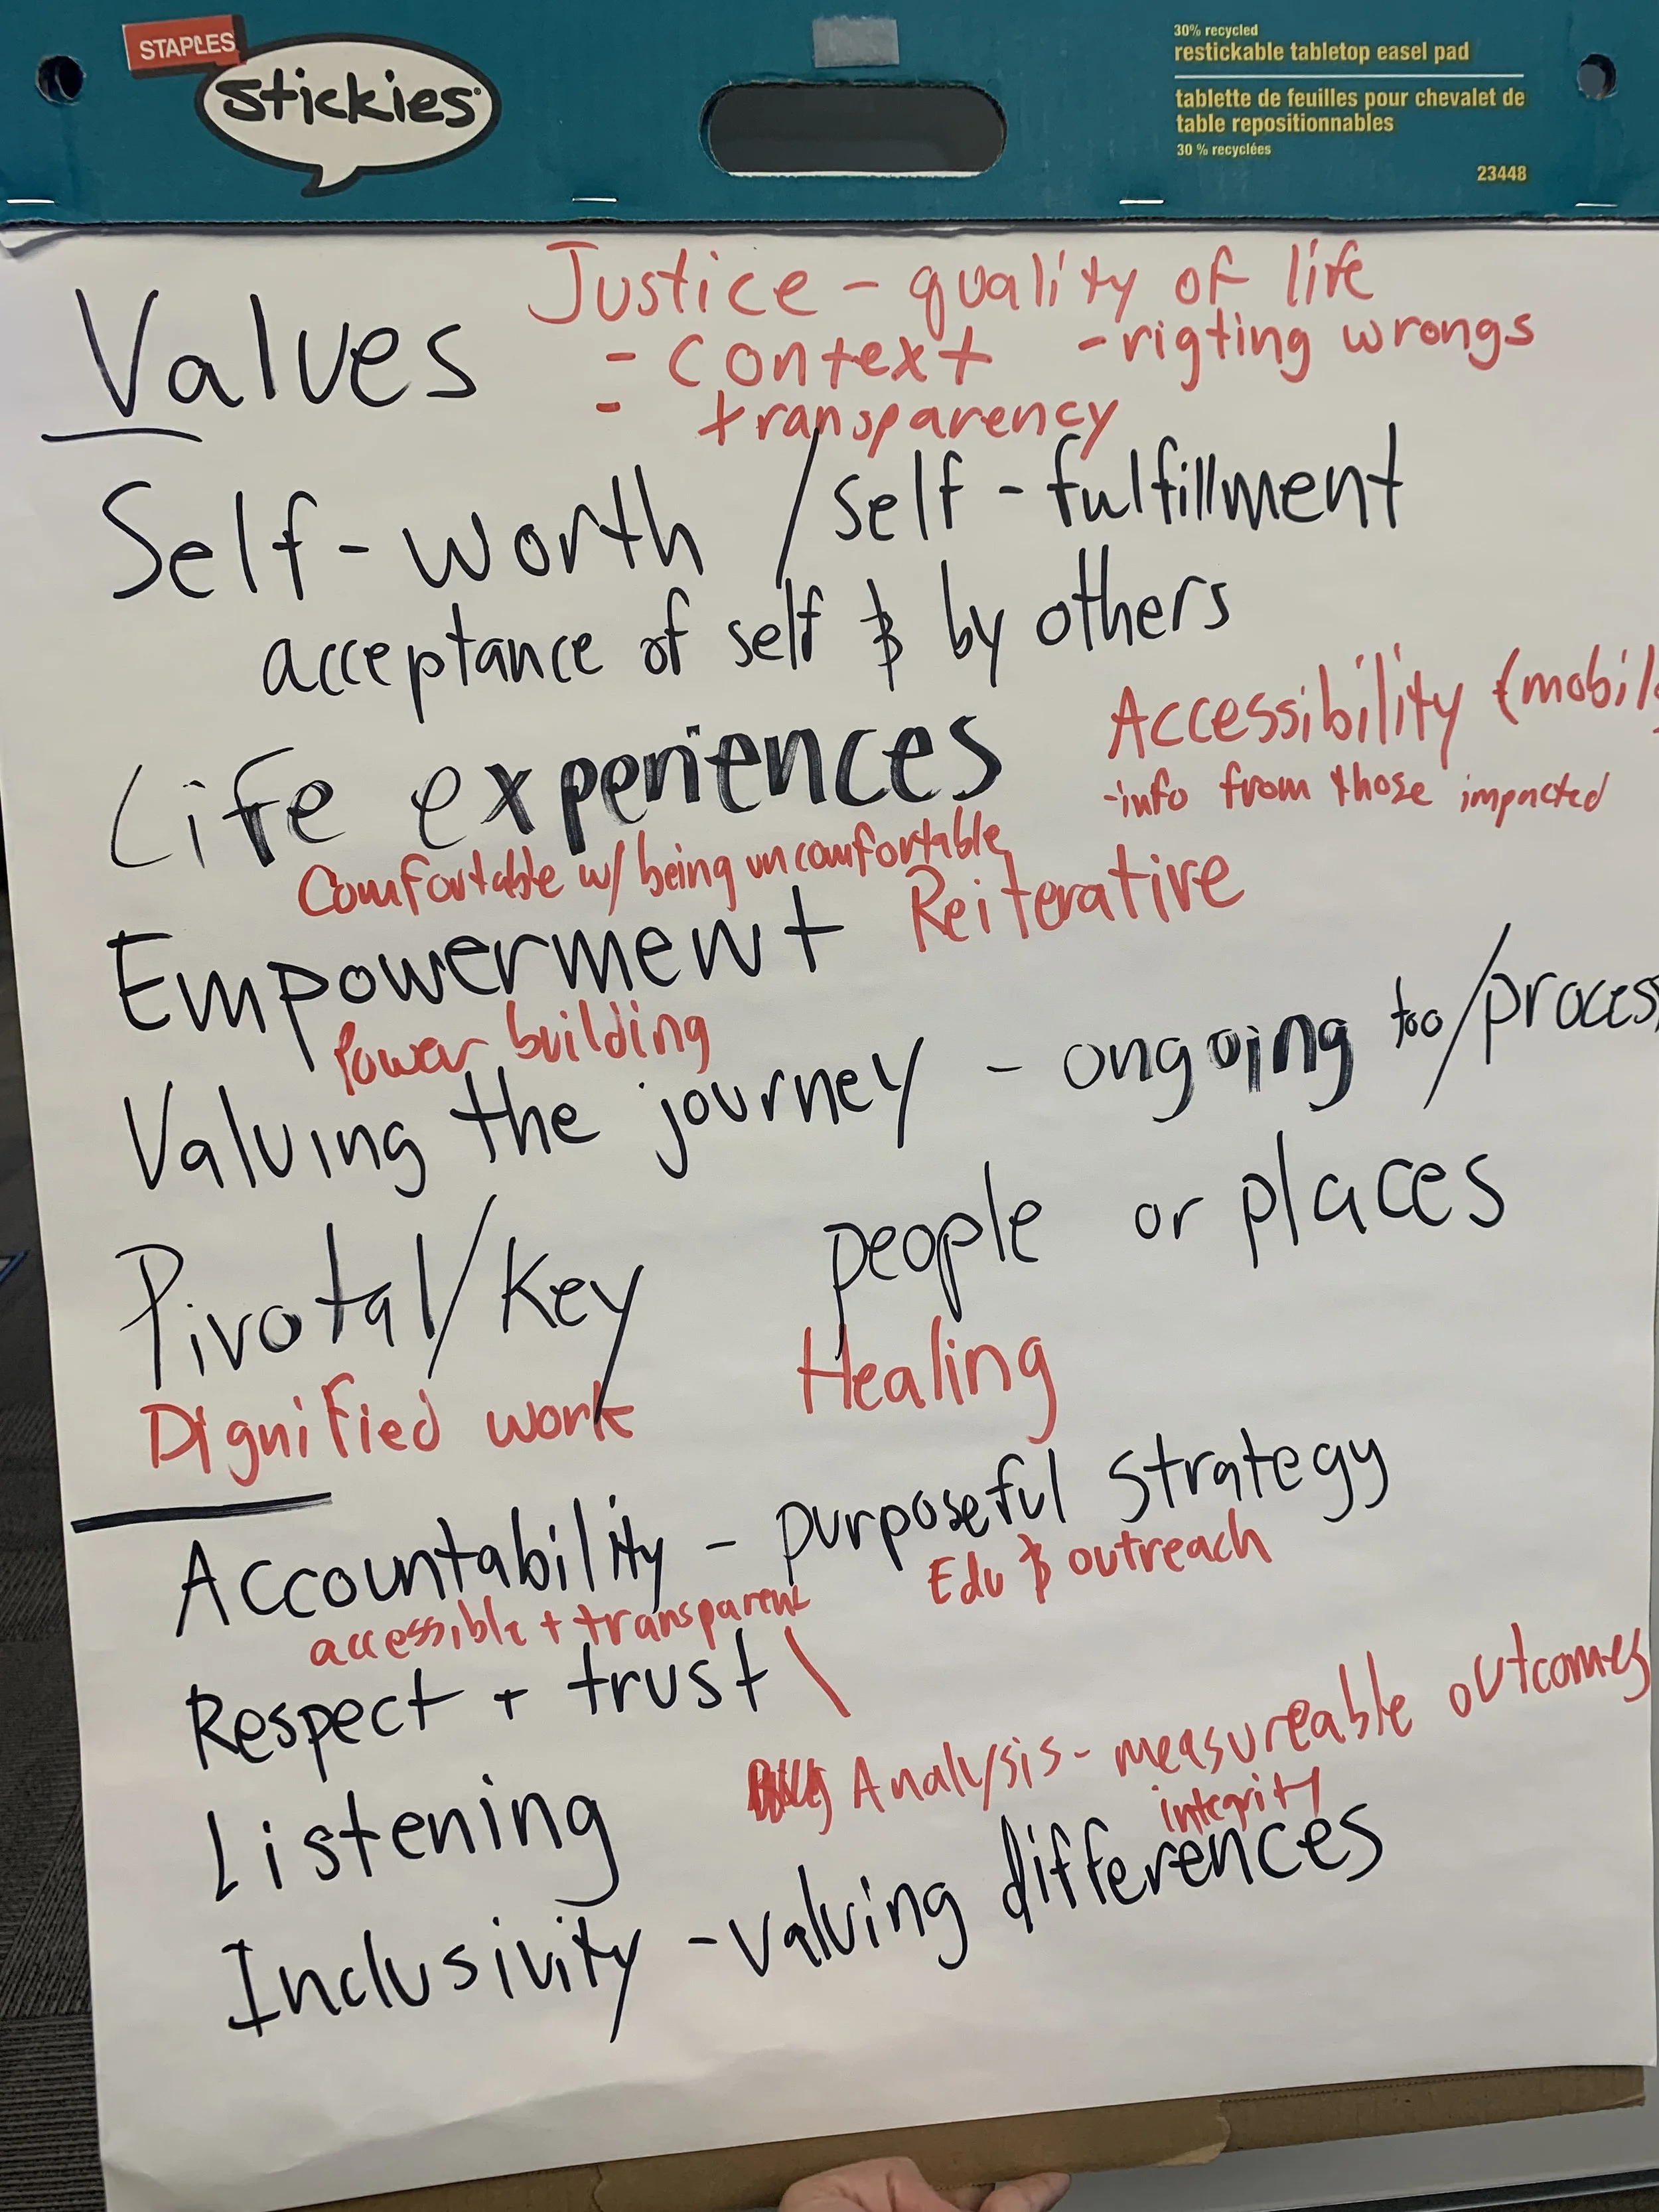 STAPLES
stickies
30% recycled
restickable tabletop easel pad
tablette de feuilles pour chevalet de
table repositionnables
30 % recyclées
23448
Justice - quality of life
Values
- context - rigting wrongs
- transparency
Self-worth / self-fulfillment
acceptance of self & by others
Accessibility
Life experiences
-info from those impacted
Comfortable w/ being uncomfortable
Empowerment Reiterative
Power building
Valuing the journey - ongoing too/process
Pivotal/key people or places
Dignified work Healing
Accountability - purposeful strategy
Edu & outreach
accessible + transparent
Respect + trust \
Analysis - measureable outcomes
integrity
Listening
Inclusivity - valuing differences